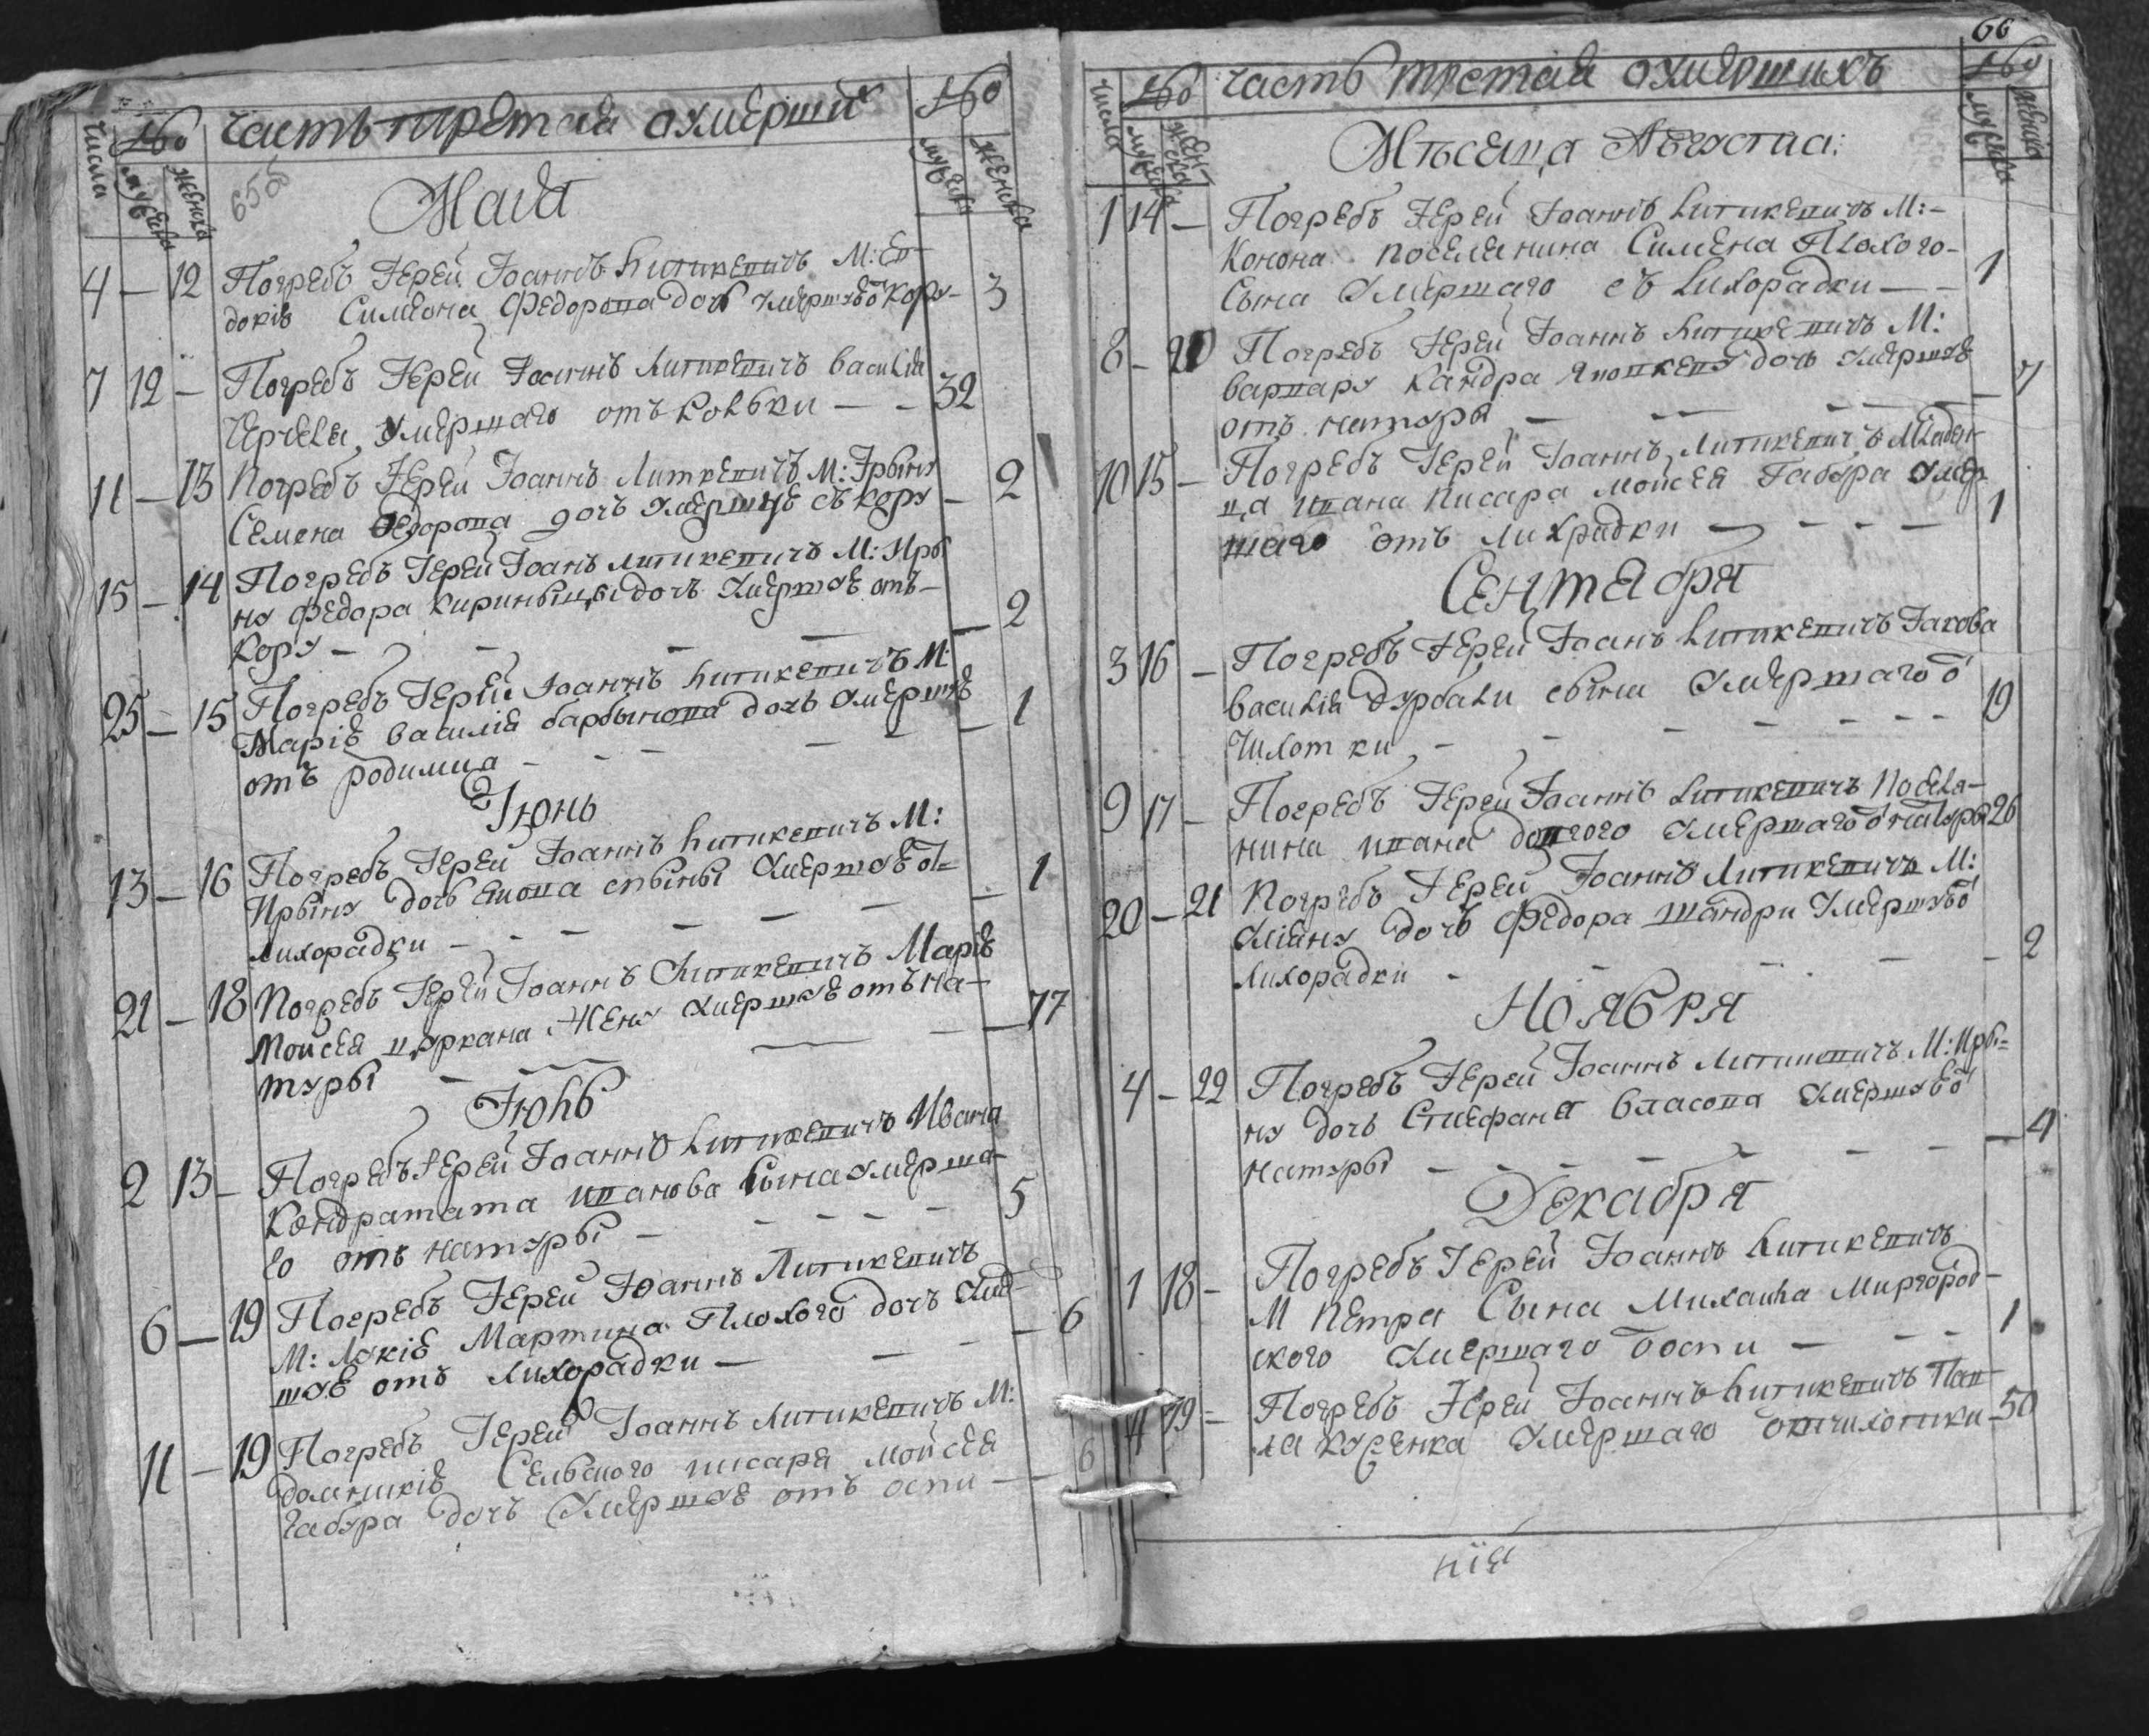 Часть третая о умершихъ
Числа
мужеска
женска
мужеска
женска
65об
Маиа
4 — 12 Погребъ Іерей Іоаннъ Литикевичъ М: Ев
докію Симеона Федорова дочь умершую Кору — 3
7 12 — Погребъ Іерей Іоаннъ Литикевичъ Василія
умершаго отъ Кольки — — 32
11 — 13 Погребъ Іерей Іоаннъ Литкевичъ М: Ірыну
Семена Федорова дочъ умершую съ кору — 2
15 — 14 Погребъ Іерей Іоанъ Литикевичъ М: Иры
ну Федора дочъ умершую отъ —
кору — — — — 2
25 — 15 Погребъ Іерей Іоаннъ Литикевичъ М:
Марію Василія Барбынова дочь умершую
отъ родимца — — — — — 1
Іюнь
13 — 16 Погребъ Іерей Іоаннъ Литикевичъ М:
Ирыну дочь умершую о
лихорадки — — — — — — 1
21 — 18 Погребъ Іерей Іоаннъ Литикевичъ Марію
Мойсея Цуркана Жену умершую отъ на —
туры — — — — 77
Іюль
2 13 — Погребъ Іерей Іоаннъ Литикевичъ Ивана
Кондратата Иванова сына умерша —
го отъ натуры — — — — — 5
6 — 19 Погребъ Іерей Іоаннъ Литикевичъ
М: Лукію Мартина Плохого дочъ умер
шую отъ Лихорадки — — — — 6
11 — 19 Погребъ Іерей Іоаннъ Литикевичъ М:
домникію Сельского писаря Мойсея
Габура дочъ умершую отъ оспи — — 6
66
Часть третая о умершихъ
Числа
мужеска
женска
мужеска
женска
Мѣсеца Августа:
1 14 — Погребъ Іерей Іоаннъ Литикевичъ М: —
Конона поселенина Симена Плохого —
Сына умершаго съ Лихорадки — — 1
8 — 20 Погребъ Іерей Іоаннъ Литикевичъ М:
Варвару Кандра дочь умершую
отъ натуры — — — — 7
10 15 — Погребъ Іерей Іоаннъ Литикевичъ Младен
ца Ивана Писара Мойсея Габура умер
шаго отъ лихрадки — — — — 1
Сентабря
3 16 — Погребъ Іерей Іоанъ Литикевичъ Іакова
Василія Дурбали сына умершаго о
чихотки — — — — — — 19
9 17 — Погребъ Іерей Іоаннъ Литикевичъ Посела —
нина Ивана Довгого умершаго о натуры 26
20 — 21 Погребъ Іерей Іоаннъ Литикевичъ М:
Уліяну дочь Федора Шандри умершую о
лихорадки — — — — — 2
Ноября
4 — 22 Погребъ Іерей Іоаннъ Литикевичъ М: Иры =
ну дочь Стиефана Власова умершую о
натуры — — — — — — — 4
Декабря
1 18 — Погребъ Іерей Іоаннъ Литикевичъ
М Петра Сына Михаила Миргород —
ского умершаго о оспи — — — 1
4 19 = Погребъ Іерей Іоаннъ Литикевичъ Пав
ла умершаго отчихотики — 50
нія